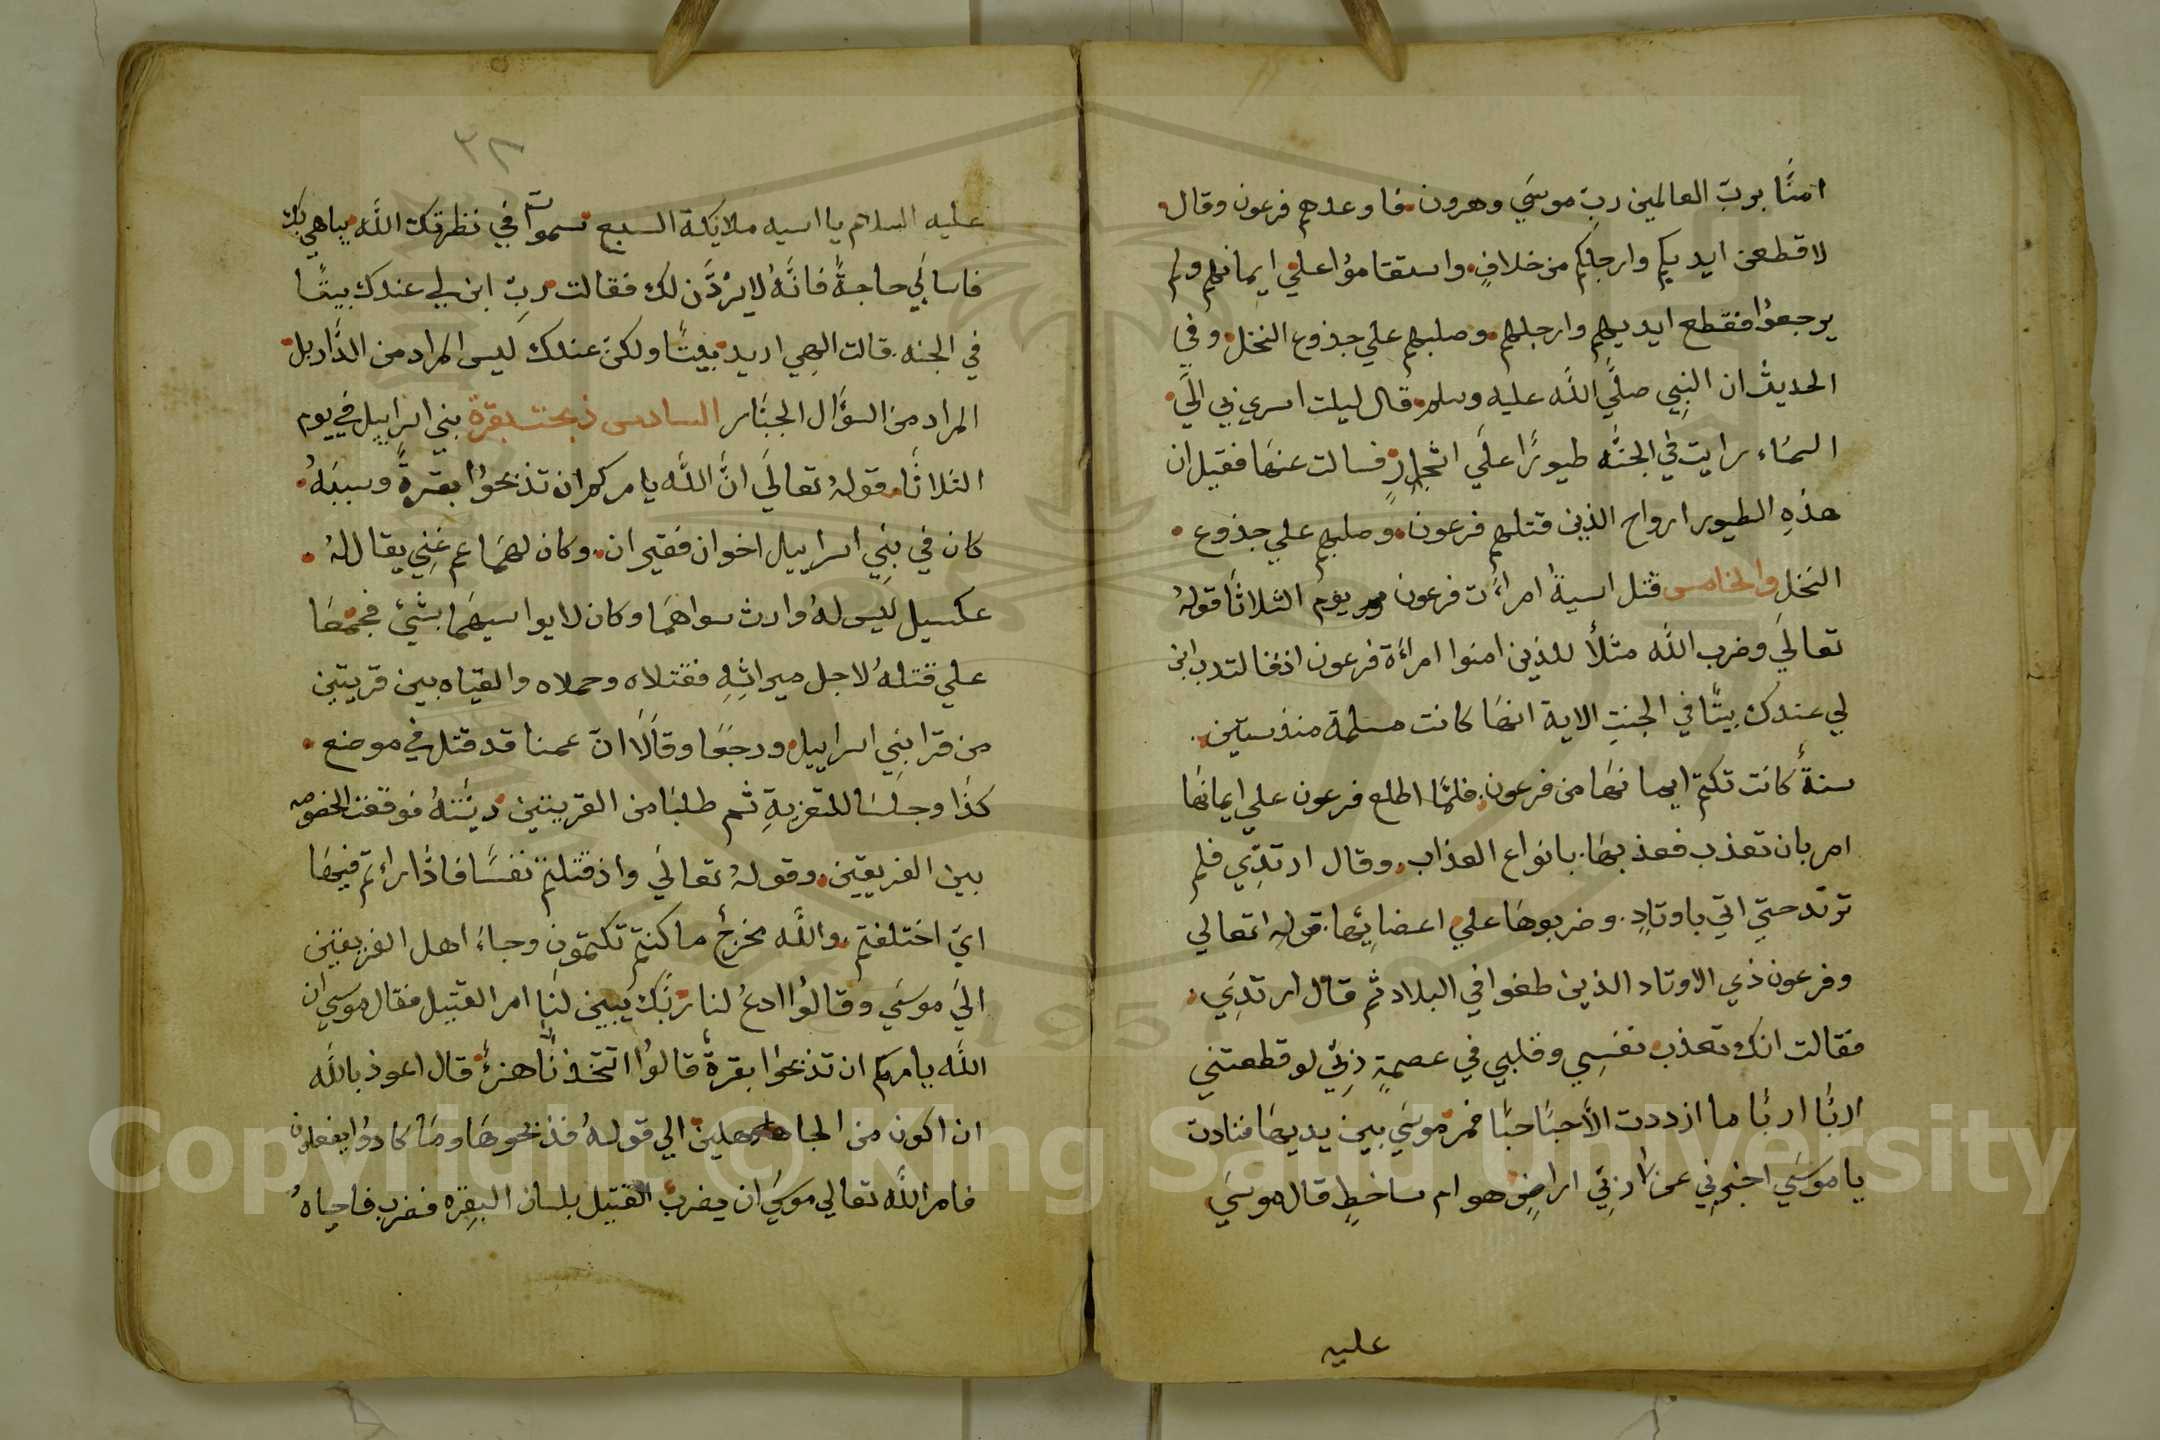 امنَّا بربّ العالمين ربِّ موسَي وهرون فاوعدهم فرعون وقال
لاقطعن ايديكم وارجلكم من خلافٍ واستقاموُا علي ايمانهم ولم
يرجعوُا فقطع ايديهم وارجلهم وصلبهم علي جذوع النخل وفي
الحديث ان النبِي صلَّي اللَّه عليه وسلم قال ليلت اسري بي الَي
السمَاء رايت في الجنَّه طيورًا علَي اشجارٍ فسالت عنهَا فقيل ان
هذهِ الطيور ارواح الذين قتلهم فرعون وصلبهم علي جذوع
النخل والخامس قتل اسيةُ امراءَت فرعون يوم الثلاثَا قولهُ
تعالَي وضرب اللَّه مثلًا للذين امنوا امراءَة فرعون اذقالت رب ابن
لي عندك بيتًا في الجنتِ الاية انهَا كانت مسلمة منذ ستين
سنةً كانت تكتم ايمانهَا من فرعون فلمَّا اطلع فرعون علي ايمانهَا
امر بان تعذب فعذبهَا بانواع العذاب وقال ارتدِّي فلم
ترتد حتي اتي باوتادٍ وضربوهَا علي اعضايِهَا قوله تعالي
وفرعون ذي الاوتاد الذين طغوا في البلاد ثم قال ارتدِي
فقالت انك تعذب نفسِي وقلبي في عصمةٍ ربِّي لو قطعتني
اربًا اربًا ما ازددت الَّا حبًا حبًا فمر موسَي بين يديهَا فنادت
يا موسَي اخبرنِي عن ربِّي اراضٍ هو ام ساخطٍ قال موسَي
عليه
٣٨
عليه السلام يا اسيه ملايكة السبع سموات في نظرتك اللَّه يباهي بك
فاسالي حاجةً فانَّهُ لا يرُدَّن لك فقالت ربِّ ابن لي عندك بيتًا
في الجنه قالت الهِي اريد بيتًا ولكن عندك ليس المراد من الدَّار بل
المراد من السؤَال الجبَّار السادس ذبحت بقرة بني اسراييل في يوم
الثلاثَا قولهُ تعالَي انَّ اللَّه يامركم ان تذبحوُا بقرةً وسببهُ
كان في بنِي اسراييل اخوان فقيران وكان لهمَا عم غنِي يقال لهُ
عكسيل ليس لهُ وارث سواهمَا وكان لا يواسيهمَا بشيٍ فجمعَا
علي قتلهُ لاجل ميراثِهِ فقتلاه وحملاه والقياه بين قريتين
من قرا بنِي اسراييل ورجعَا وقالَا انَّ عمنا قد قتل في موضع
كذَا وجلسَا للتعزيةِ ثم طلبَا من القريتين ديتهُ فوقعت الخصومه
بين الفريقين وقولهُ تعالَي واذ قتلتم نفسًا فادَّاراءتم فيهَا
ايّ اختلفتم واللَّه مخرجٌ ما كنتم تكتمون وجاءَ اهل الفريقين
الَي موسَي وقالوُا ادعُ لنا ربَّك يبين لنا امر القتيل فقال موسي ان
اللَّه يامركم ان تذبحوا بقرةً قالوُا اتتخذنَا هزءًا قال اعوذ باللَّه
ان اكون من الجاهلين الي قولهُ فذبحوهَا ومَا كادوُا يفعلون
فامر اللَّه تعالي موسَي ان يضرب القتيل بلسان البقره فضرب فاحياهُ
Copyright © King Saud University